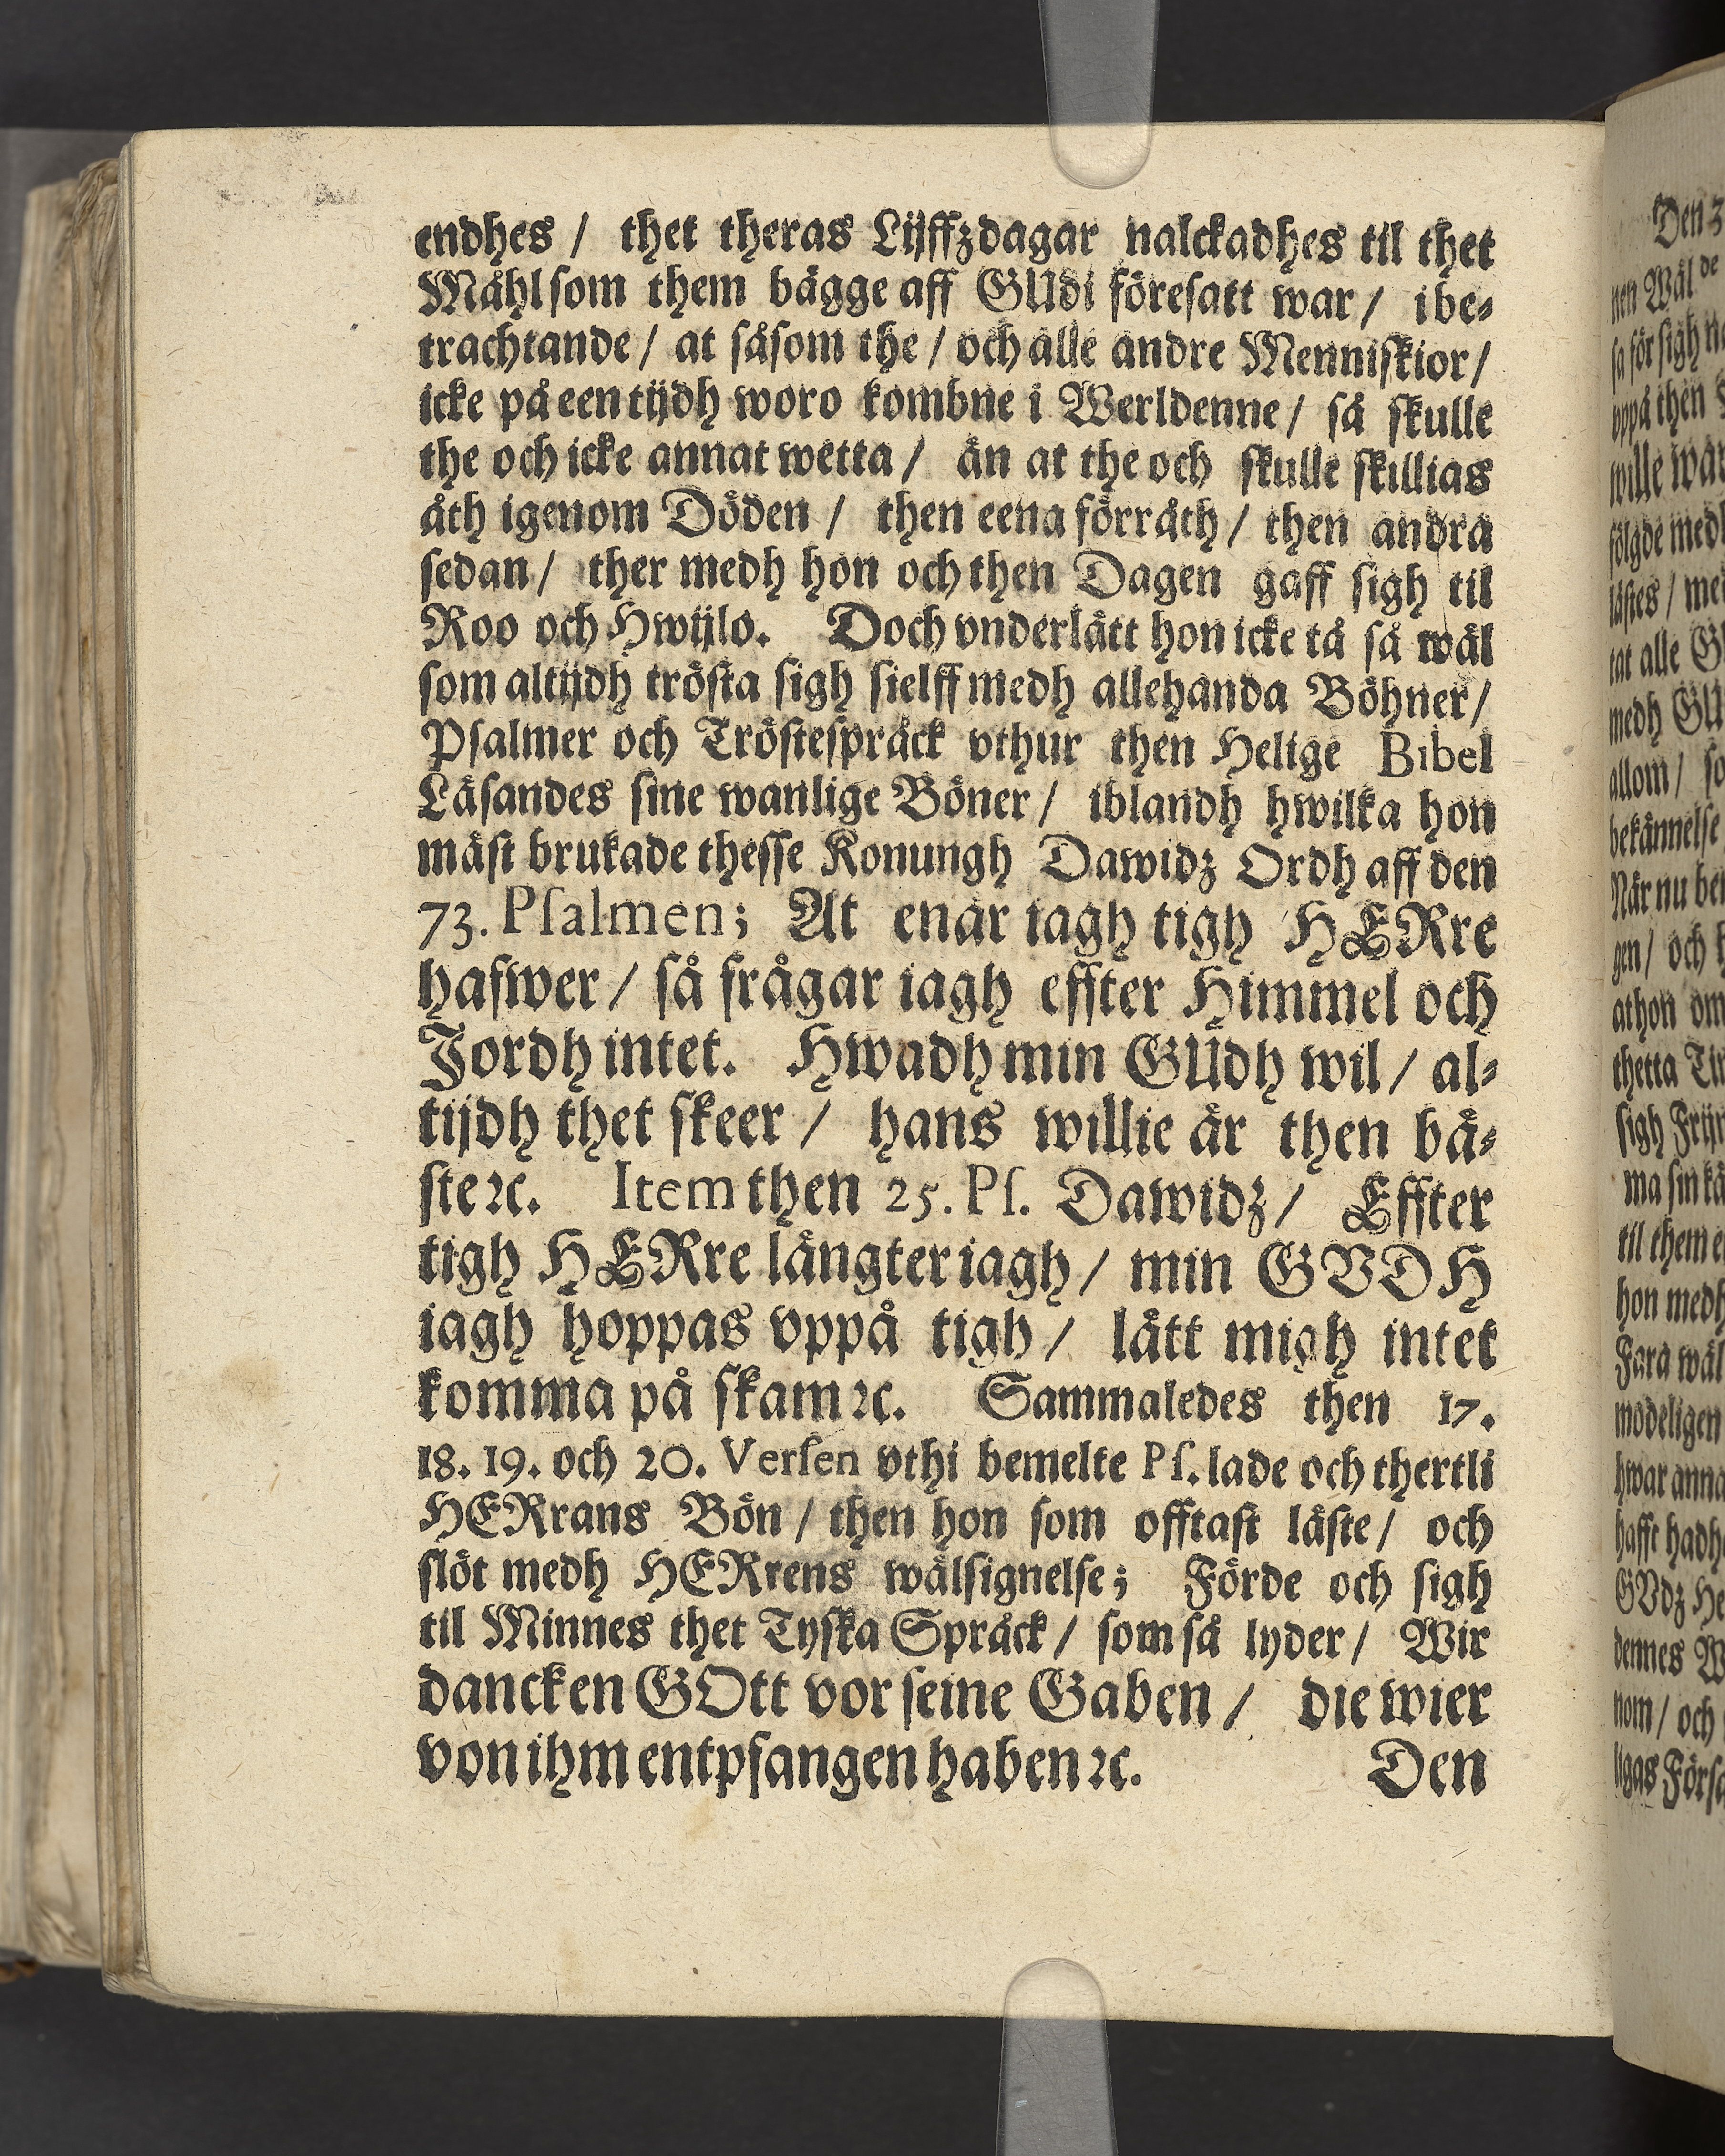 endhes / thet theras Lijffzdagar nalckadhes til thet
Måhl som them bägge aff GUdi föresatt war / i be-
trachtande / at såsom the / och alle andre Menniskior /
icke på een tijdh woro kombne i Werldenne / så skulle
the och icke annat wetta / än at the och skulle skillias
åth igenom Döden / then eena förråth / then andra
sedan / ther medh hon och then Dagen gaff sigh til
Roo och Hwijlo. Doch vnderlätt hon icke tå så wäl
som altijdh trösta sigh sielff medh allehanda Böhner /
Psalmer och Tröstespråck vthur then Helige Bibel
Läsandes sine wanlige Böner / iblandh hwilka hon
mäst brukade thesse Konungh Dawidz Ordh aff den
73. Psalmen; At enär iagh tigh HERre
hafwer / så frågar iagh effter Himmel och
Jordh intet. Hwadh min GUdh wil / al-
tijdh thet skeer / hans willie är then bä-
ste ꝛc. Item then 25. Ps. Dawidz / Effter
tigh HERre längter iagh / min GVDH
iagh hoppas vppå tigh / lätt migh intet
komma på skam ꝛc. Sammaledes then 17.
18. 19. och 20. Versen vthi bemelte Ps. lade och thertli
HERrans Bön / then hon som offtast läste / och
slöt medh HERrens wälsignelse; Förde och sigh
til Minnes thet Tyska Språck / som så lyder / Wir
dancken GOtt vor seine Gaben / die wier
von ihm entpfangen haben ꝛc. Den
Den
nen Wäl de
sa för sigh
vppå then
wille
fölgde medh
lästes /
tat alle
medh
allom /
bekännelse
När nu
gen / och
at hon om
thetta
sigh
ma sin
til them
hon medh
Fara wäl
modeligen
hwar anna
hafft hadh
GVdz
dennes
nom / och
ligas